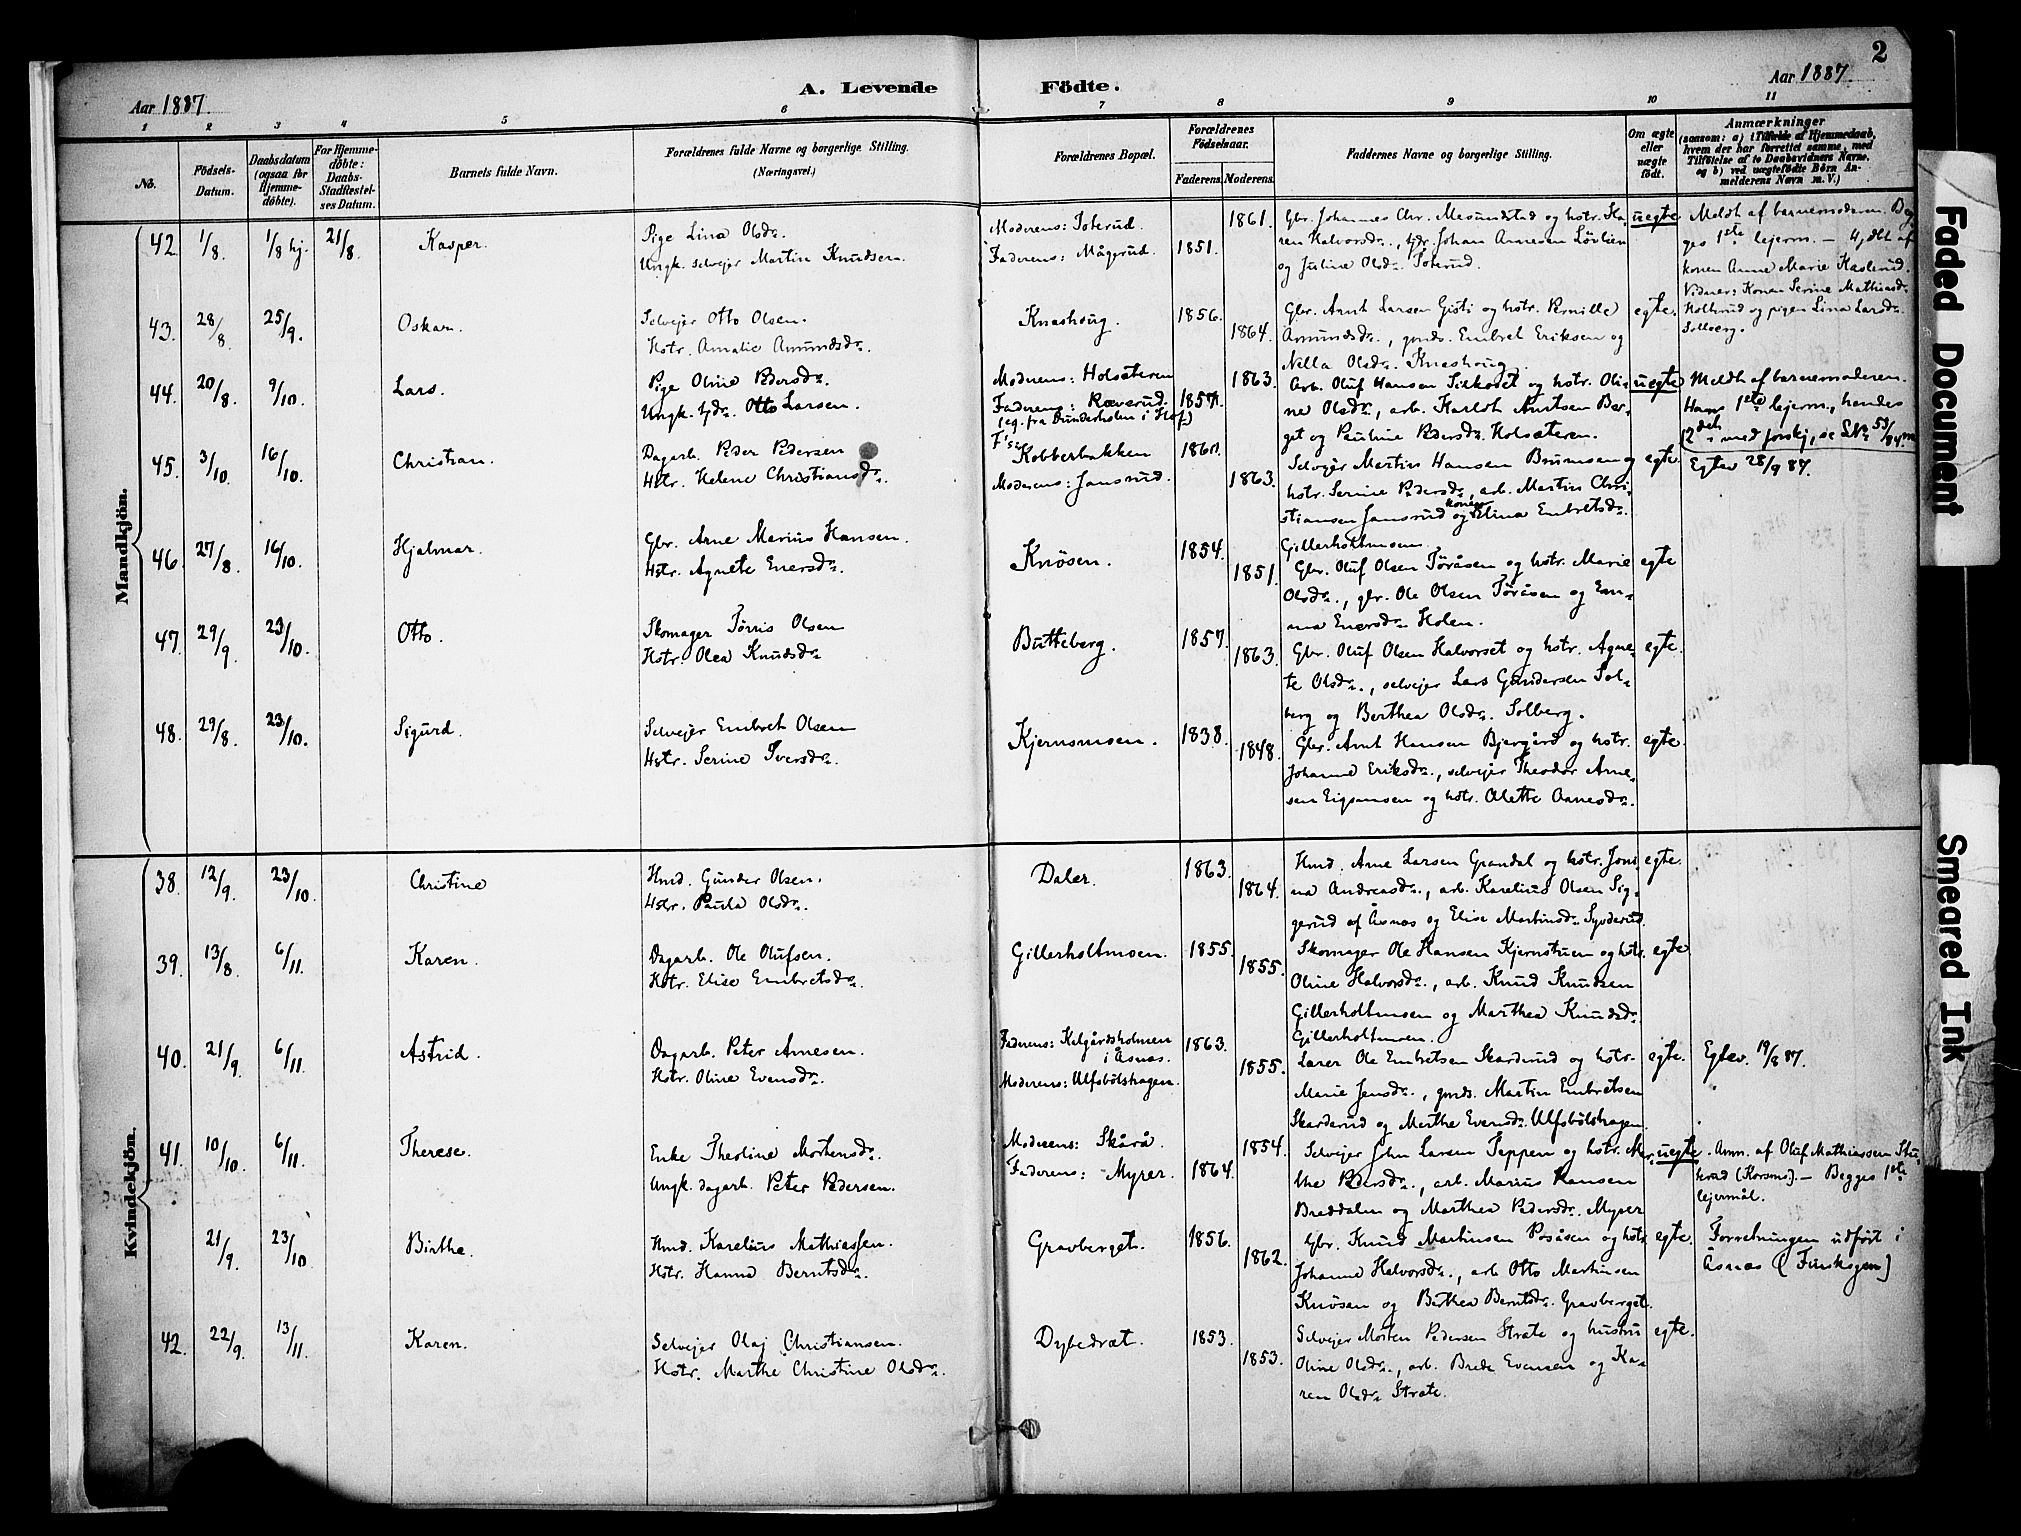 2
Aar 1887.
A. Levende Födte.
Aar 1887.
1 2 3 4 5 6 7 8 9 10 11
No.
Födsels-Datum.
Daabsdatum (ogsaa for Hjemme-döbte).
For Hjemme-döbte: Daabs-Stadfæstel-ses Datum.
Barnets fulde Navn.
Forældrenes fulde Navne og borgerlige Stilling.
(Næringsvei.)
Forældrenes Bopæl.
Forældrenes Födselsaar.
Faderens. Moderens.
Faddernes Navne og borgerlige Stilling.
Om ægte eller uægte födt.
Anmærkninger
(saasom: a) i Tilfælde af Hjemmedaab, hvem der har forrettet samme, med Tilföielse af to Daabsvidners Navne, og b) ved uægtefödte Börn An-melderens Navn m. V.)
Mandkjön.
42. 1/8. 1/8 hj. 21/8. Kasper.
Pige Lina Olsdr.
Ungk. selvejer Martin Knudsen.
Moderens: Toterud.
Faderens: Mågerud.
1851. 1861.
Gbr. Johannes Chr. Mesundstad og hstr. Ka-
ren Halvorsdr., tjdr. Johan Arnesen Lövlien
og Justine Olsdr. Toterud.
uegte
Meldt af barnemoderen. Beg-
ges 1ste lejerm. — Hj.dbt af
konen Anne Marie Haslerud.
Vidner: Konen Serine Mathiasdr.
Holterud og pigen Lina Larsdr.
Solberg.
43. 28/8 25/9. Oskar.
Selvejer Otto Olsen.
Hstr. Amalie Amundsdr.
Knashoug.
1856. 1864.
Gbr. Arnt Larsen Gisti og hstr. Pernille
Amundsdr., gmds. Embret Eriksen og
Nella Olsdr. Knashoug.
egte.
44. 20/8. 9/10. Lars.
Pige Oline Pedersdr.
Ungk. tjdr. Otto Larsen.
Moderens: Holsæteren
Faderens:Ræverud.
(eg. fra Dunderholen i Hof.)
1857. 1863.
Arb. Oluf Hansen Silkoset og hstr. Oli-
ne Olsdr., arb. Karldt Aretsen Ber-
get og Pauline Pedersdr. Holsæteren.
uegte
Meldt af barnemoderen.
Hans 1ste lejerm., hendes
2det med forskj., se LNr 53/84
45. 3/10. 16/10. Christian.
Dagarb. Peder Pedersen
Hstr. Helene Christiansdr.
F's: Kobberbakken
Moderens: Jansrud.
1860. 1863.
Selvejer Martin Hansen Brumsen og
hstr. Serine Pedersdr., arb. Martin Chri-
stiansen Jansrud og konen Elina Embretsdr.
Gillerholtmoen.
egte.
Egtev 28/9 87.
46. 27/8. 16/10. Hjalmar.
Gbr. Arne Marius Hansen.
Hstr. Agnete Enersdr.
Knösen.
1854. 1851.
Gbr. Oluf Olsen Töråsen og hstr. Marie
Olsdr., gbr. Ole Olsen Töråsen og Em-
ma Enersdr. Holen.
egte
47. 29/9. 23/10. Otto.
Skomager Törris Olsen
Hstr. Olea Knudsdr.
Butteberg.
1857. 1863.
Gbr. Oluf Olsen Halvorset og hstr. Agne-
te Olsdr., selvejer Lars Gundersen Sol-
berg og Berthea Olsdr. Solberg.
egte.
48. 29/8. 23/10. Sigurd.
Selvejer Embret Olsen
Hstr. Serine Iversdr.
Kjernsmoen.
1838. 1848.
Gbr. Arnt Hansen Bjergård og hstr.
Johanne Eriksdr., selvejer Theodor Arne-
sen Eigsmoen og hstr. Olette Aanesdr.
egte.
Kvindekjön.
38. 12/9. 23/10. Christine
Hmd. Gunder Olsen.
Hstr. Paula Olsdr.
Daler.
1863. 1864.
Hmd. Arne Larsen Grandal og hstr. Joni-
na Andreasdr., arb. Karelius Olsen Sig-
gerud af Åsnæs og Elise Martinsdr. Synderud
egte.
39. 13/8. 6/11. Karen.
Dagarb. Ole Olufsen.
Hstr. Elise Embretsdr.
Gillerholtmoen.
1855. 1855.
Skomager Ole Hansen Kjernstuen og hstr.
Oline Halvorsdr., arb. Knud Knudsen
Gillerholtmoen og Marthea Knudsdr.
Gillerholtmoen.
egte.
40. 21/9. 6/11. Astrid.
Dagarb. Peter Arnesen.
Hstr. Oline Evensdr.
Faderens: Kelgårdsholmen
i Åsnæs.
Moderens: Ulfsbölshagen.
1863. 1855.
Lærer Ole Embretsen Skarderud og hstr.
Marie Jensdr., gmds. Martin Embretsen
Skarderud og Marthe Evensdr. Ulfsbölshagen
egte.
Egtev. 19/8 87.
41. 10/10. 6/11. Therese.
Enke Theoline Mortensdr.
Ungk. dagarb. Peter Pedersen.
Moderens: Skårå
Faderens: Myrer.
1864. 1854.
Selvejer John Larsen Teppen og hstr. Mar-
the Pedersdr., arb. Marius Hansen
Breddalen og Marthea Pedersdr. Myrer
uegte.
Anm. af Oluf Mathiassen
(Korsmo.) — Begges 1ste
lejermål.
21/9. 23/10 Birthe.
Hmd. Karelius Mathiassen.
Hstr. Hanna Berntsdr.
Gravberget.
1856. 1862.
Gbr. Knud Martinsen Posåsen og hstr
Johanne Halvorsdr., arb. Otto Martinsen
Knösen og Berthea Berntsdr. Gravberget.
egte.
Forretningen udfört i
Åsnæs (Finskogen)
42. 22/9. 13/11. Karen.
Selvejer Olaj Christiansen.
Hstr. Marthe Christine Olsdr.
Dybedræt.
1853. 1853.
Selvejer Morten Pedersen Stræte og hustru
Oline Olsdr., arb. Brede Evensen og Ka-
ren Olsdr. Stræte.
egte.
Faded Document
Smeared Ink